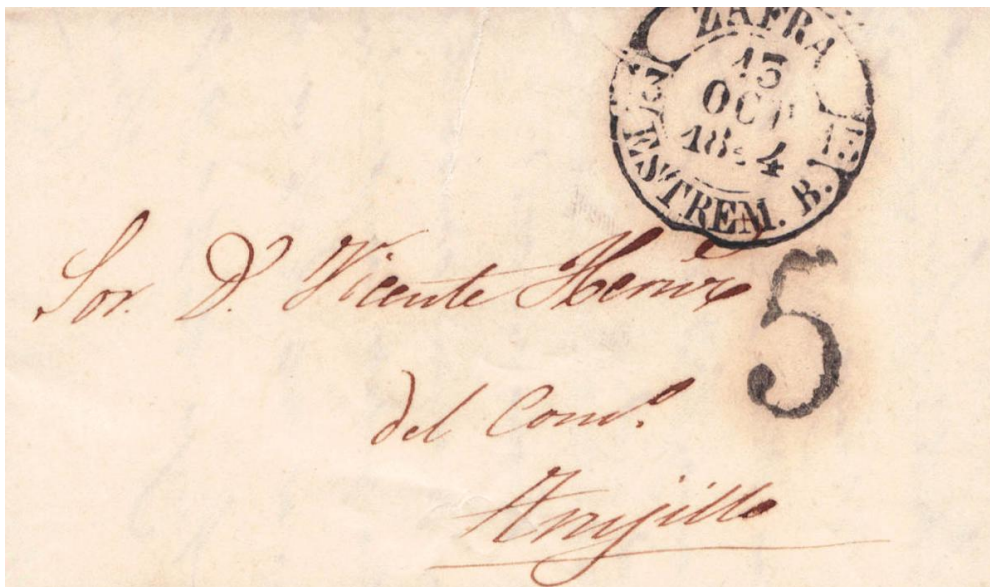 ZAFRA
13
OCT
184
ESTREM. B.
5
Sor. D.n Vicente
del Com.o
Trujillo